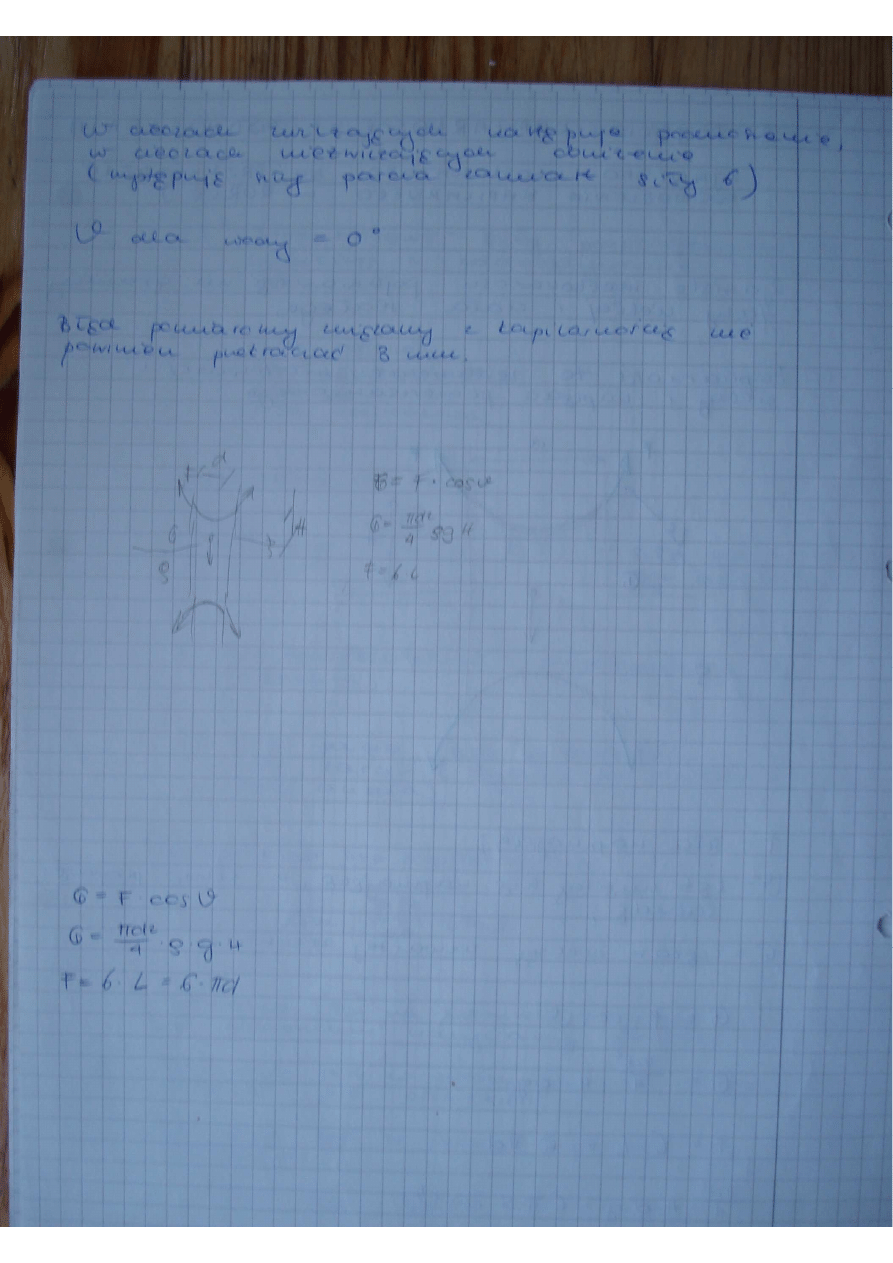 w cieczach zwilżających następuje podniesienie,
w cieczach niezwilżających obniżenie
( występuje przy zamiast siły G )
ϑ dla wody = 0°
Błąd pomiarowy związany z kapilarnością nie
powinien przekraczać 3 mm.
d
G = F · cosϑ
G = πd²/4 ρg H
F = σ L
G
H
ρ
G = F cos ϑ
G = πd²/4 · ρ g · H
F = σ · L = σ · πd